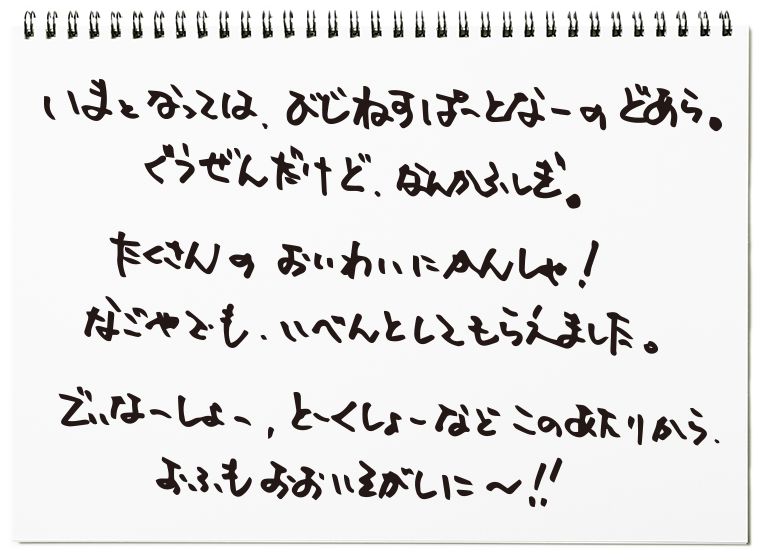 いまとなっては、びじねすぱーとなーのどあら。
ぐうぜんだけど、なんかふしぎ。
たくさんのおいわいにかんしゃ!
なごやでも、いべんとしてもらえました。
でぃなーしょー,とーくしょーなどこのあたりから、
おふもおおいそがしに〜!!